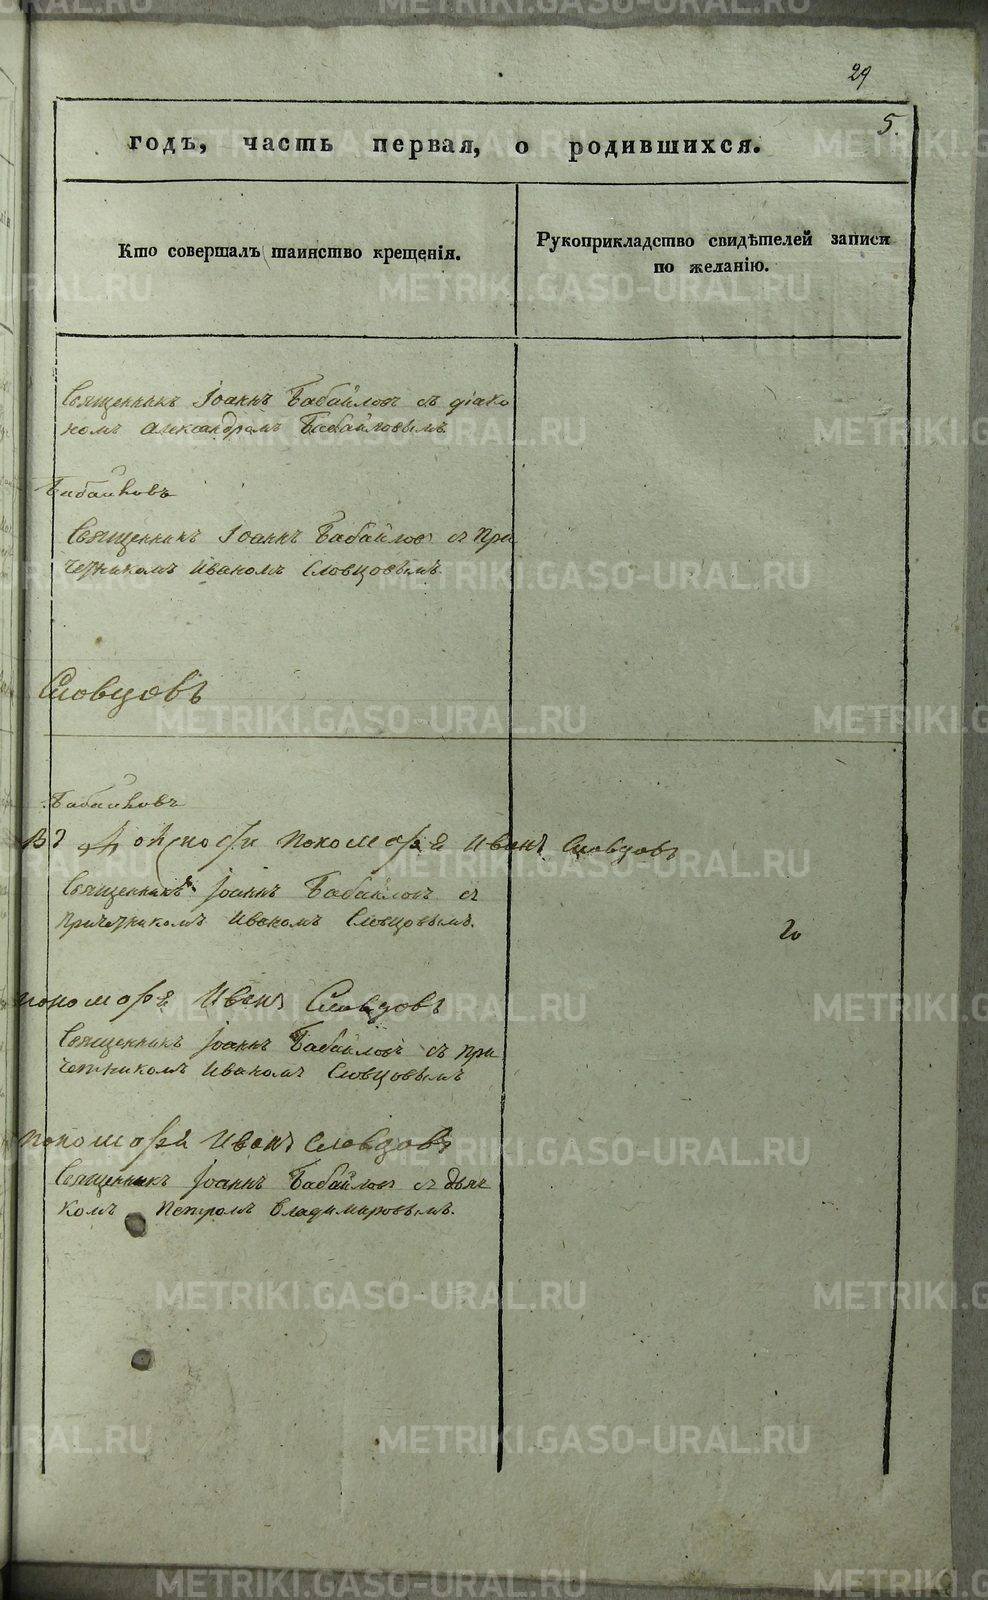 29
5.
годъ, часть первая, о родившихся.
Кто совершалъ таинство крещенія.
Рукоприкладство свидѣтелей записи
по желанію.
Священникъ Іоаннъ Бабайловъ съ діако
номъ Александромъ Бабайловымъ
Священникъ Іоаннъ Бабайловъ съ при
четникомъ Иваномъ Словцовымъ.
Словцовъ
Въ должности пономаря Иванъ Словцовъ
Священникъ Іоаннъ Бабайловъ съ
причетникомъ Иваномъ Словцовымъ.
20
пономарь Иванъ Словцовъ
Священникъ Іоаннъ Бабайловъ съ при
четникомъ Иваномъ Словцовымъ
пономарь Иванъ Словцовъ
Священникъ Іоаннъ Бабайловъ съ дьяч
комъ Петромъ Владимировымъ.
METRIKI.GASO-URAL.RU